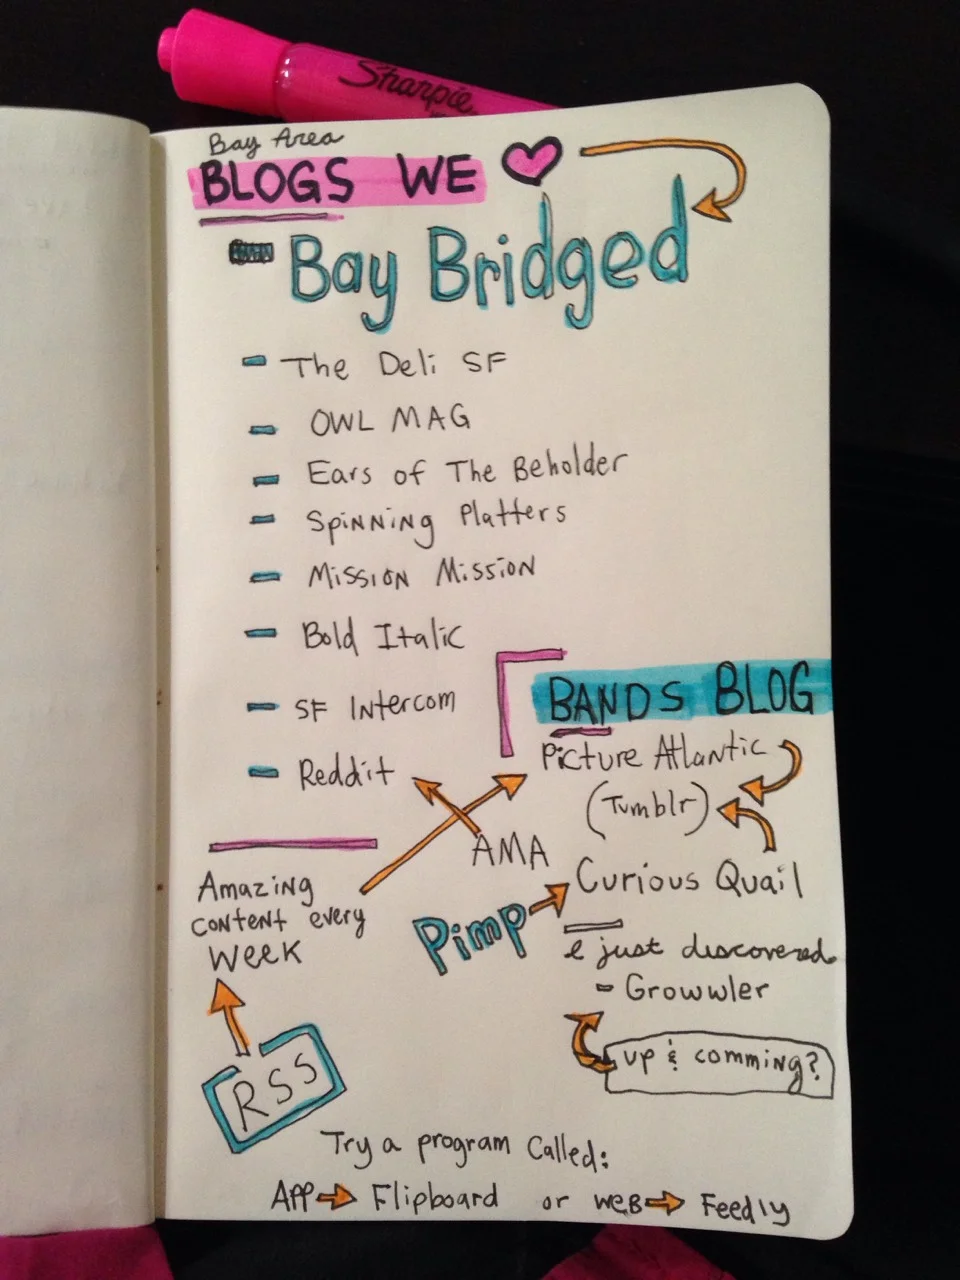 Sharpie
Bay Area
BLOGS WE
Bay Bridged
The Deli SF
OWL MAG
Ears of The Beholder
Spinning Platters
Mission Mission
Bold Italic
SF Intercom
Reddit
AMA
Amazing
content every
week
RSS
BANDS BLOG
Picture Atlantic
(Tumblr)
Pimp
Curious Quail
just discovered
- Growwler
up & comming?
Try a program called:
App Flipboard or web Feedly